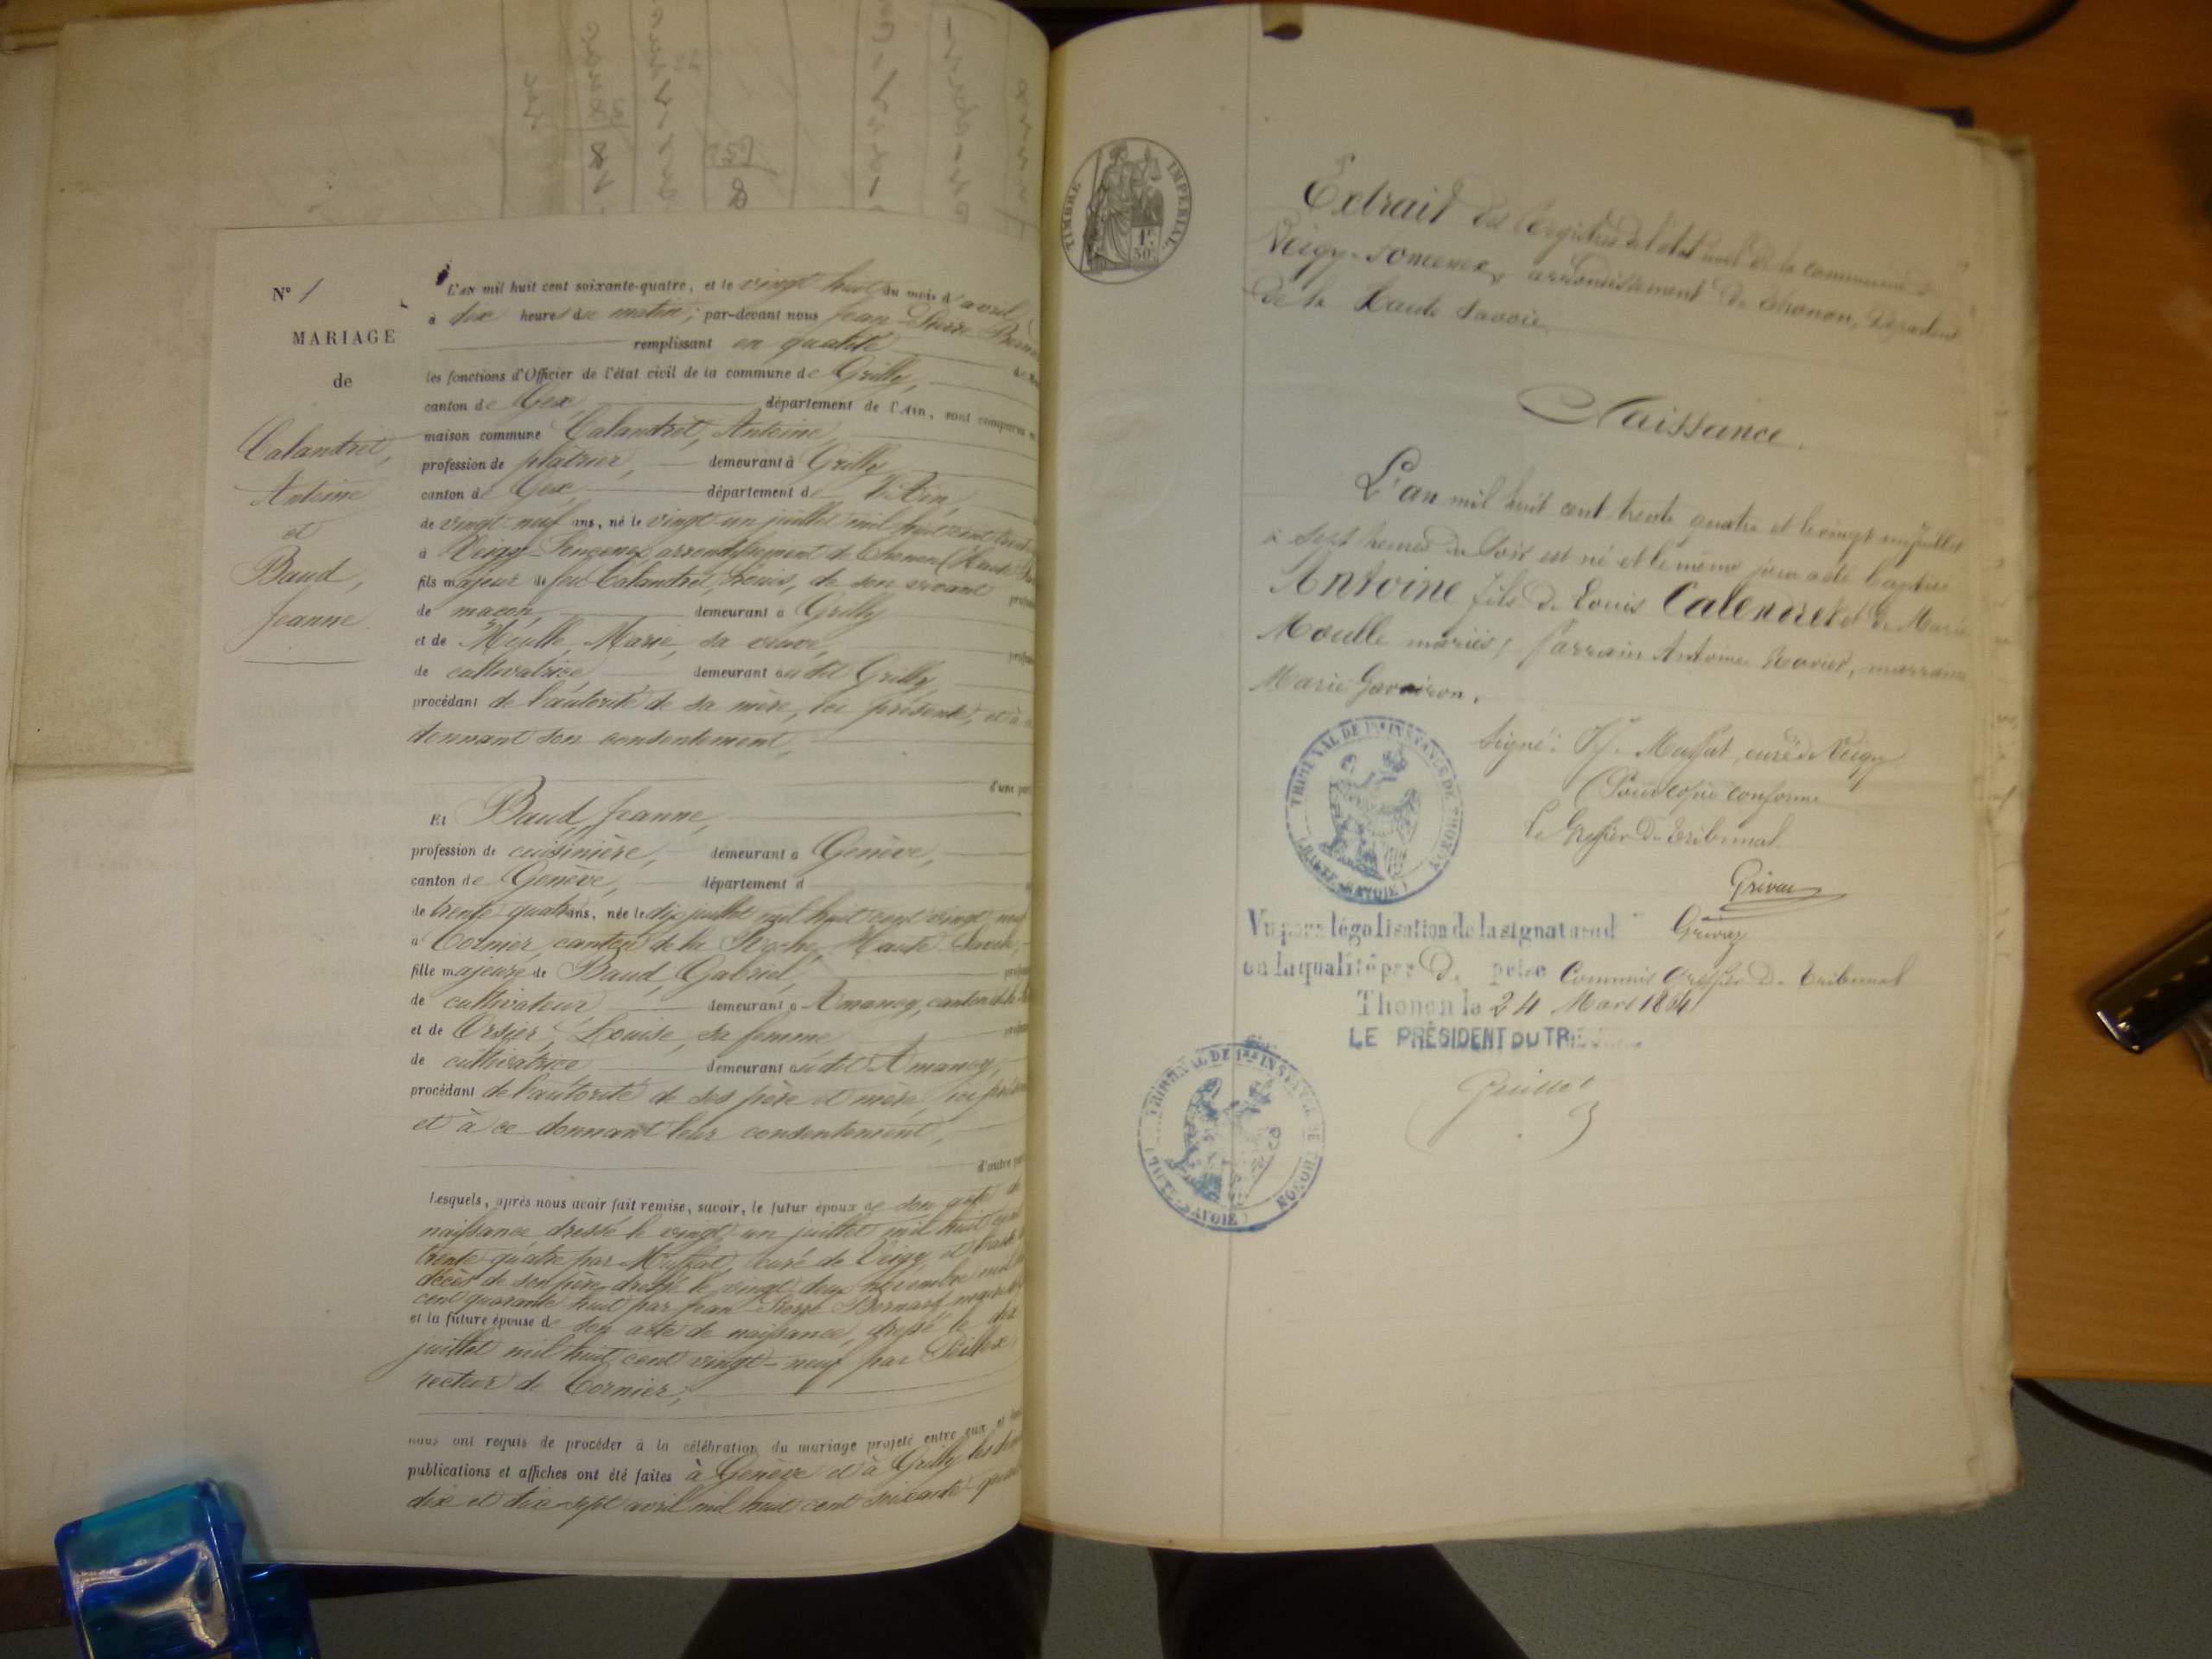 N° 1
MARIAGE
de
Calandret,
Antoine
et
Baud,
Jeanne.
L'AN mil huit cent soixante-quatre, et le vingt huit du mois d'avril,
à dix heures du matin; par-devant nous Jean-Pierre Bernard
remplissant en qualité de
les fonctions d'Officier de l'état civil de la commune de Grilly,
canton de Gex, département de l'Ain, sont comparus
maison commune Calandret, Antoine,
profession de plâtrier, demeurant à Grilly
canton de Gex département de l'Ain,
de vingt-neuf ans, né le vingt-un juillet mil huit cent trente
à Veigy-Foncenex arrondissement de Thonon (Haute
fils majeur de feu Calandret, Louis, de son vivant profes
de maçon demeurant à Grilly
et de Moulle, Marie, sa veuve, profes
de cultivatrice demeurant audit Grilly,
procédant de l'autorité de sa mère, ici présente, et à
donnant son consentement,
d'une part
Et Baud, Jeanne,
profession de cuisinière, demeurant à Genève,
canton de Genève, département d
de trente quatre ans, née le dix juillet mil huit cent vingt neuf
à Cornier, canton de la Roche, Haute-Savoie,
fille majeure de Baud, Gabriel,
de cultivateur demeurant à Amancy, canton de la
et de Orsier, Louise, sa femme
de cultivatrice demeurant audit Amancy,
procédant de l'autorité de ses père et mère, ici présents
et à ce donnant leur consentement,
d'autre part
Lesquels, après nous avoir fait remise, savoir, le futur époux de son acte de
naissance dressé le vingt-un juillet mil huit cent
trente quatre par Muffat, curé de Veigy, et l'acte de
décès de son père dressé le vingt deux novembre mil
cent quarante huit par Jean-Pierre Bernard
et la future épouse de son acte de naissance, dressé le dix
juillet mil huit cent vingt-neuf par
recteur de Cornier,
nous ont requis de procéder à la célébration du mariage projeté entre eux, et
publications et affiches ont été faites à Genève et à Grilly
dix et dix-sept avril mil huit cent soixante-quatre
TIMBRE IMPÉRIAL
1F 50C
Extrait des Registres de l'état civil de la commune de
Veigy-Foncenex, arrondissement de Thonon, Département
de la Haute Savoie
Naissance.
L'an mil huit cent trente quatre et le vingt un Juillet
à sept heures du soir est né et le même jour a été baptisé
Antoine fils de Louis Calendret et de Marie
Moulle mariés; parrain Antoine , marraine
Marie
TRIBUNAL DE 1RE INSTANCE DE THONON
(HAUTE-SAVOIE)
Signé: Muffat, curé de Veigy
Pour copie conforme
Le Greffier du Tribunal
Grivaz
Vu pour légalisation de la signature d Grivaz
en la qualité par D. prise Commis Greffier du Tribunal
Thonon le 24 Mars 1864
LE PRÉSIDENT DU TRIBUNAL
TRIBUNAL DE 1RE INSTANCE DE THONON
(HAUTE-SAVOIE)